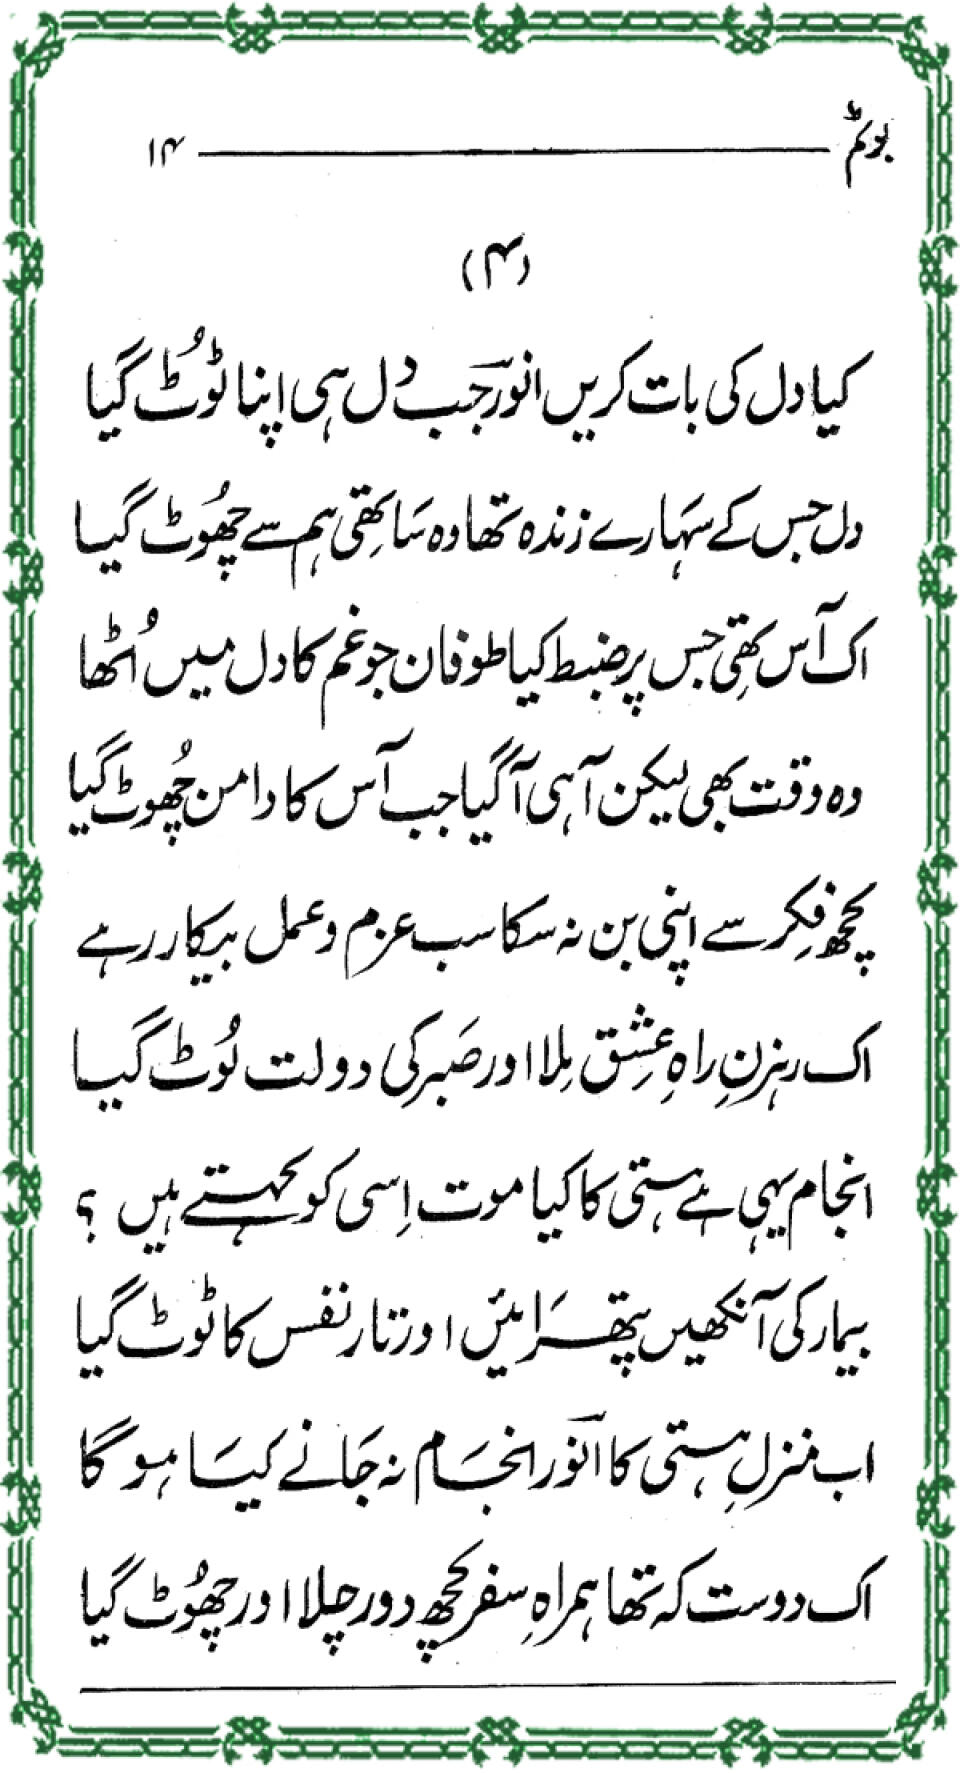 بوئم ۱۴
(۴)
کیا دل کی بات کریں انورؔ جب دل ہی اپنا ٹوُٹ گیا
دل جس کے سہارے زندہ تھا وہ سَاتھی ہم سے چھُوٹ گیا
اک آس تھی جس پر ضبط کیا طوفان جو غم کا دل میں اُٹھا
وہ وقت بھی لیکن آہی آگیا جب آس کا دامن چھُوٹ گیا
کچھ فِکر سے اپنی بن نہ سکا سب عزم و عمل بیکار رہے
اک رہزنِ راہِ عِشق مِلا اور صَبر کی دولت لُوٹ گیا
انجام یہی ہے ہستی کا کیا موت اِسی کو کہتے ہیں ؟
بیمار کی آنکھیں پتھرَائیں اور تار نفس کا ٹوٹ گیا
اب منزلِ ہستی کا انورؔ انجَام نہ جَانے کیسَا ہوگا
اک دوست کہ تھا ہمراہِ سفر کچھ دور چلا اور چھُوٹ گیا